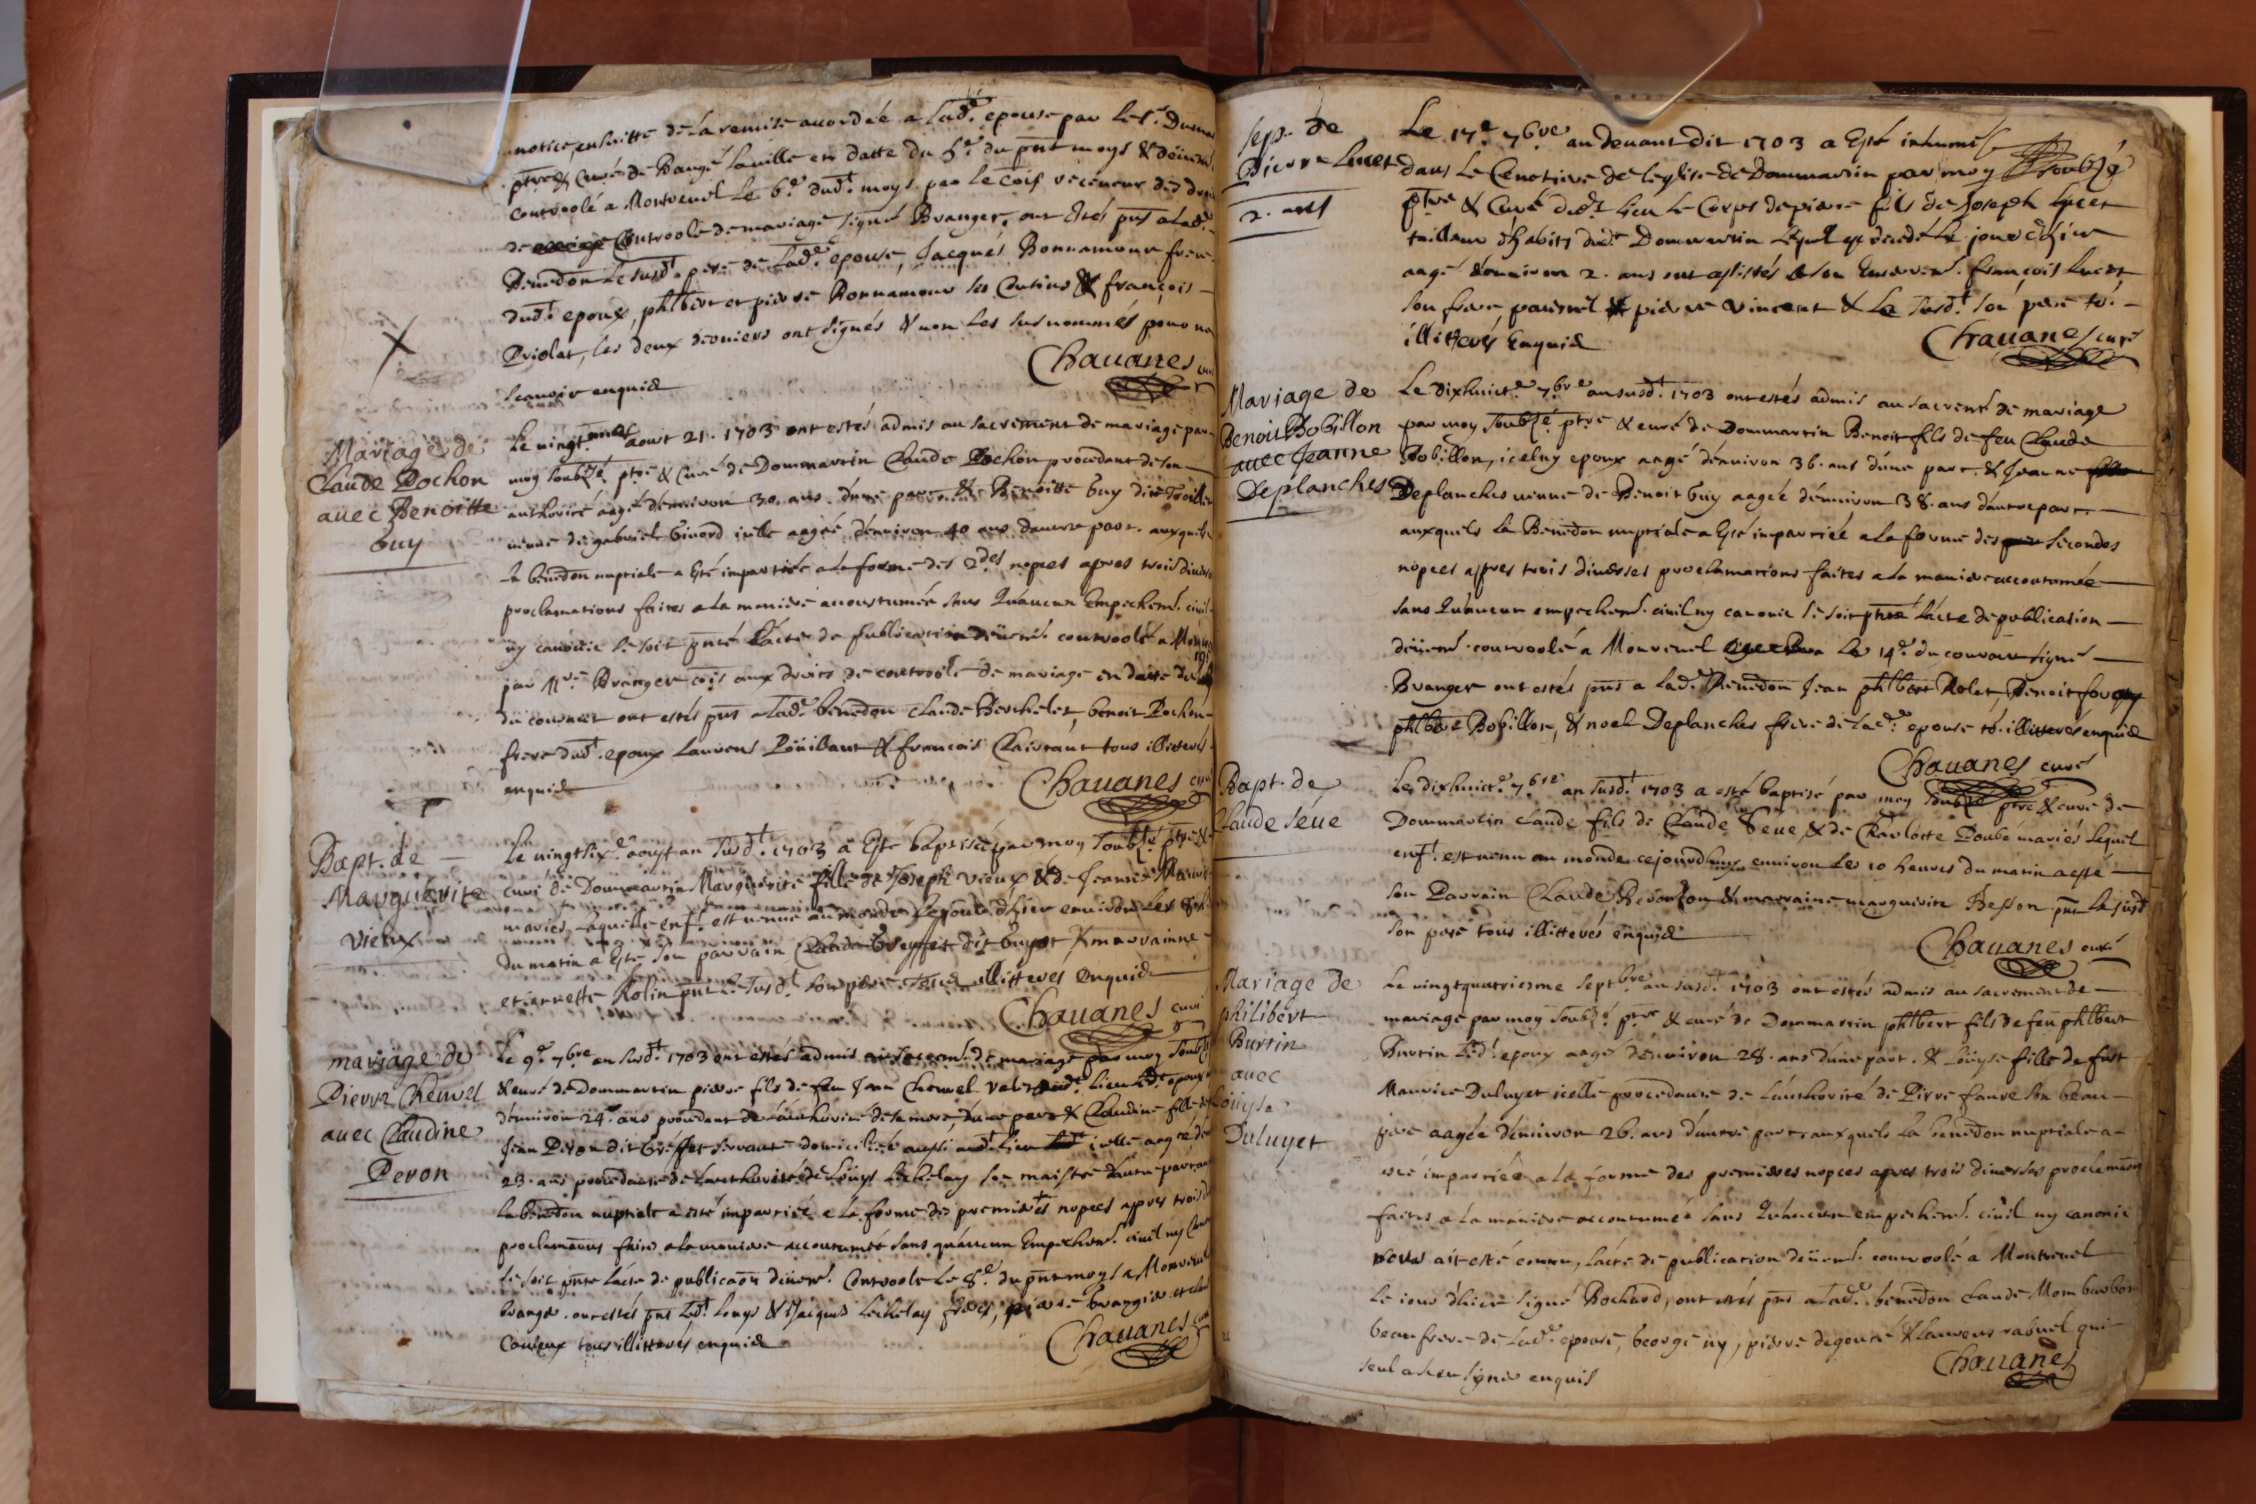 notice, ensuitte de la remise accordée a lad.e epouse par le s.r
ptre & curé de Baugé laville en datte du 5.e du pnt moys & deüem.t
controolé a Montrevel le 6.e dud.t moys par le cois receveur des droits
de Controole de mariage signé Branger, ont estés pnts a lad.e
Benedon le susd.t pere de lad.e epouse, Jacques Bonnamour frere
dud.t epoux, phlbert et pierre Bonnamour ses Cousins & françois
Priolat, les deux derniers ont signés & non les susnommés pour ne
scavoir enquis
Chauanes curé
Mariage de
Claude Pochon
avec Benoitte
Guy
Le vingt aoust 21. 1703 ont estés admis au sacrement de mariage par
moy soubzé ptre & Curé de Dommartin Claude Pochon procedant de son
authorité aagé d'environ 30. ans d'une part & Benoitte Guy dite
veuve de gabriel Givord icelle aagée d'environ 40 ans dautre part. auxquels
la benedon nuptiale a esté impartiée a la forme des 2.des nopces apres trois diverses
proclamations faites a la maniere accoustumée sans qu'aucun Empechem.t civil
ny canonic se soit pnté l'acte de publication deüem.t controolé a Montrevel
par M.re Branger cois aux droits de controole de mariage en datte du
du courant ont estés pnts a lad.e benedon Claude Berthelet, benoit Pochon
frere dud.t epoux Laurens Pöuillaut & francois Clairaut tous illitterés
enquis
Chauanes curé
Bapt. de
Marguerite
Vieux
Le vingtsix.e aoust an susd.t 1703 a Esté baptisée par moy soubzé ptre &
curé de Dommartin Marguerite fille de Joseph Vieux & de Jeanne
mariés laquelle enf.t est venue au monde le jour d'hier environ les 8
du matin a Esté son parrain Claude Greyffet dit Guyot & marrainne
etiennette Rolin pnt le susd.t son pere tous illitteres enquis
Chauanes curé
mariage de
Pierre Chenel
avec Claudine
Peron
Le 9.e 7bre an susd.t 1703 ont estés admis au sacrem.t de mariage par moy soubzé
& curé de Dommartin pierre fils de feu Jean Chenel valet aud.t lieu led.t epoux
d'environ 24. ans procedant de l'authorité de sa mere, d'une part & Claudine fille de
Jean Peron dit Greffet servante domiciliée aussi aud.t lieu icelle aagée d'en
23. ans procedante de l'authorité de Loüys Lechelay son maistre d'autre part
la benedon nuptiale a esté impartiée a la forme des premieres nopces apres trois
proclamaons faites a la maniere accoutumée sans qu'aucun Empechem.t civil ny Canonic
se soit pnté l'acte de publicaon deüem.t Controolé le 8.e du pnt moys a Montrevel
branger. ont estés pnts led.t Louys & Jacques Lechelay freres, pierre brangier et
Couleux tous illitterés enquis
Chauanes curé
Sep. de
Pierre Lucet
2. ans
Le 17.e 7bre an devant dit 1703 a Esté inhumé
dans Le Cemetiere de l'eglise de Dommartin par moy Soubzé
ptre & Curé dud.t lieu Le Corps de pierre fils de Joseph Lucet
tailleur d'habits dud.t Dommartin lequel est decedé le jour d'hier
aagé d'environ 2. ans ont assistés a son Enterrem.t françois Lucet
son frere paternel & pierre Vincent & Le susd.t son pere to.s
illitterés Enquis
Chauanes curé
Mariage de
Benoit Bobillon
avec Jeanne
Deplanches
Le dixhuict.e 7bre an susd.t 1703 ont estés admis au sacrem.t de mariage
par moy soubzé ptre & curé de Dommartin Benoit fils de feu Claude
Bobillon, iceluy epoux aagé d'environ 36. ans d'une part & Jeanne
Deplanches veuve de Benoit Guy aagée d'environ 38. ans d'autre part
auxquels la Benedon nuptiale a esté impartiée a la forme des secondes
nopces apres trois diverses proclamations faites a la maniere accoutumée
sans qu'aucun empechem.t civil ny canonic se soit pnté l'acte de publication
deüem.t controolé a Montrevel le 14.e du courant signé
Branger ont estés pnts a lad.e Benedon Jean phlbert Rolet, Benoit
phlbert Bobillon, & noel Deplanches frere de lad.e epouse to.s illitterés enquis
Chauanes curé
Bapt. de
Claude Séue
Le dixhuict.e 7bre an susd.t 1703 a esté baptisé par moy soubzé ptre & curé de
Dommartin Claude fils de Claude Seue & de Charlotte Poubé mariés Lequel
enf.t est venu au monde cejourdhuy environ les 10 heures du matin a esté
son Parrain Claude & marraine marguerite Besson pnt le susd.t
son pere tous illitterés enquis
Chauanes curé
Mariage de
philibert
Burtin
avec
Loüyse
Duluyet
Le vingtquatriesme septbre an susd.t 1703 ont estés admis au sacrement de
mariage par moy soubzé ptre & curé de Dommartin phlbert fils de feu phlbert
Burtin led.t epoux aagé d'environ 28. ans d'une part. & Loüyse fille de fut
Maurice Duluyet icelle procedante de l'authorité de Pirre faure son beau
pere aagée d'environ 26. ans d'autre part auxquels la benedon nuptiale a
esté impartiée a la forme des premieres nopces apres trois diverses proclamaons
faites a la maniere accoutumée sans qu'aucun empechem.t civil ny canonic
nous ait esté connu, l'acte de publication deüem.t controolé a Montrevel
le jour d'hier signé Bochard, ont estés pnts a lad.e benedon Claude Mombarbon
beau frere de lad.e epouse, George ny, pierre degouté & Laurens rabuel qui
seul a sceu signer enquis
Chauanes